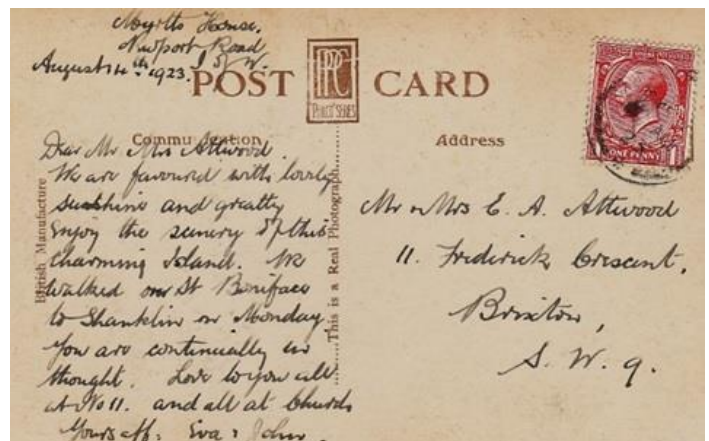 Myrtle House.
Newport Road
August 14th 1923. I of W.
POST CARD
PPC
"PHILCO" SERIES
Communication
Address
British Manufacture
This is a Real Photograph
ONE PENNY
Dear Mr Mrs Attwood
We are favoured with lovely
sunshine and greatly
enjoy the scenery of this
charming Island. We
walked over St Boniface
to Shanklin on Monday.
You are continually in
thought. Love to you all
at No 11. and all at Church
Yours aff: Eva & John.
Mr & Mrs E. A. Attwood
11. Frederick Crescent,
Brixton,
S. W. 9.